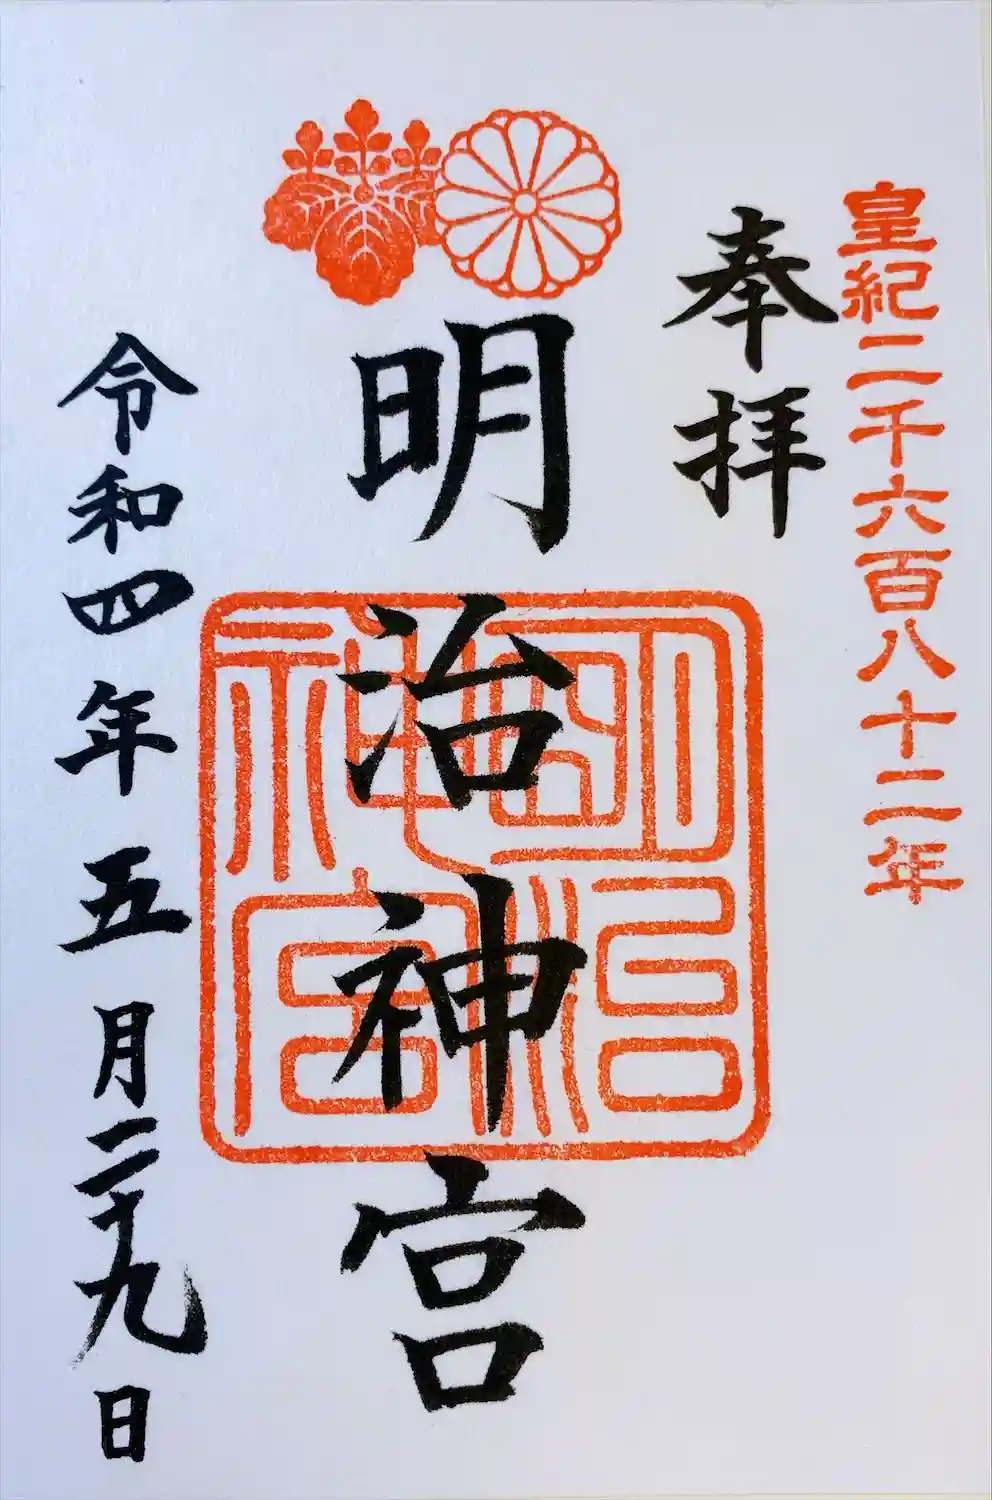 皇紀二千六百八十二年
奉拝
明治神宮
明治神宮
令和四年五月二十九日